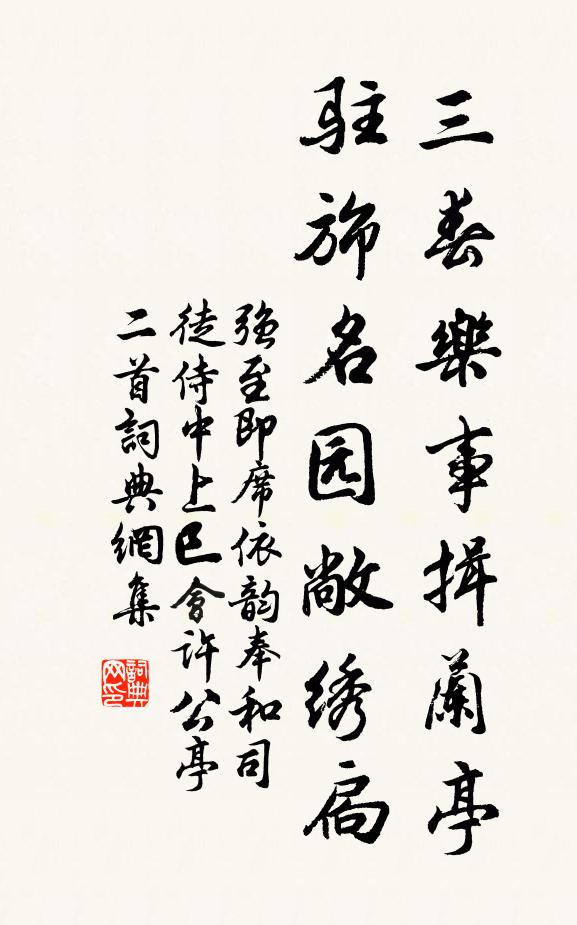 三春樂事揖蘭亭
驻旆名园敞绣扃
强至即席依韵奉和司
徒侍中上巳會許公亭
二首詞典網集
詞典网印